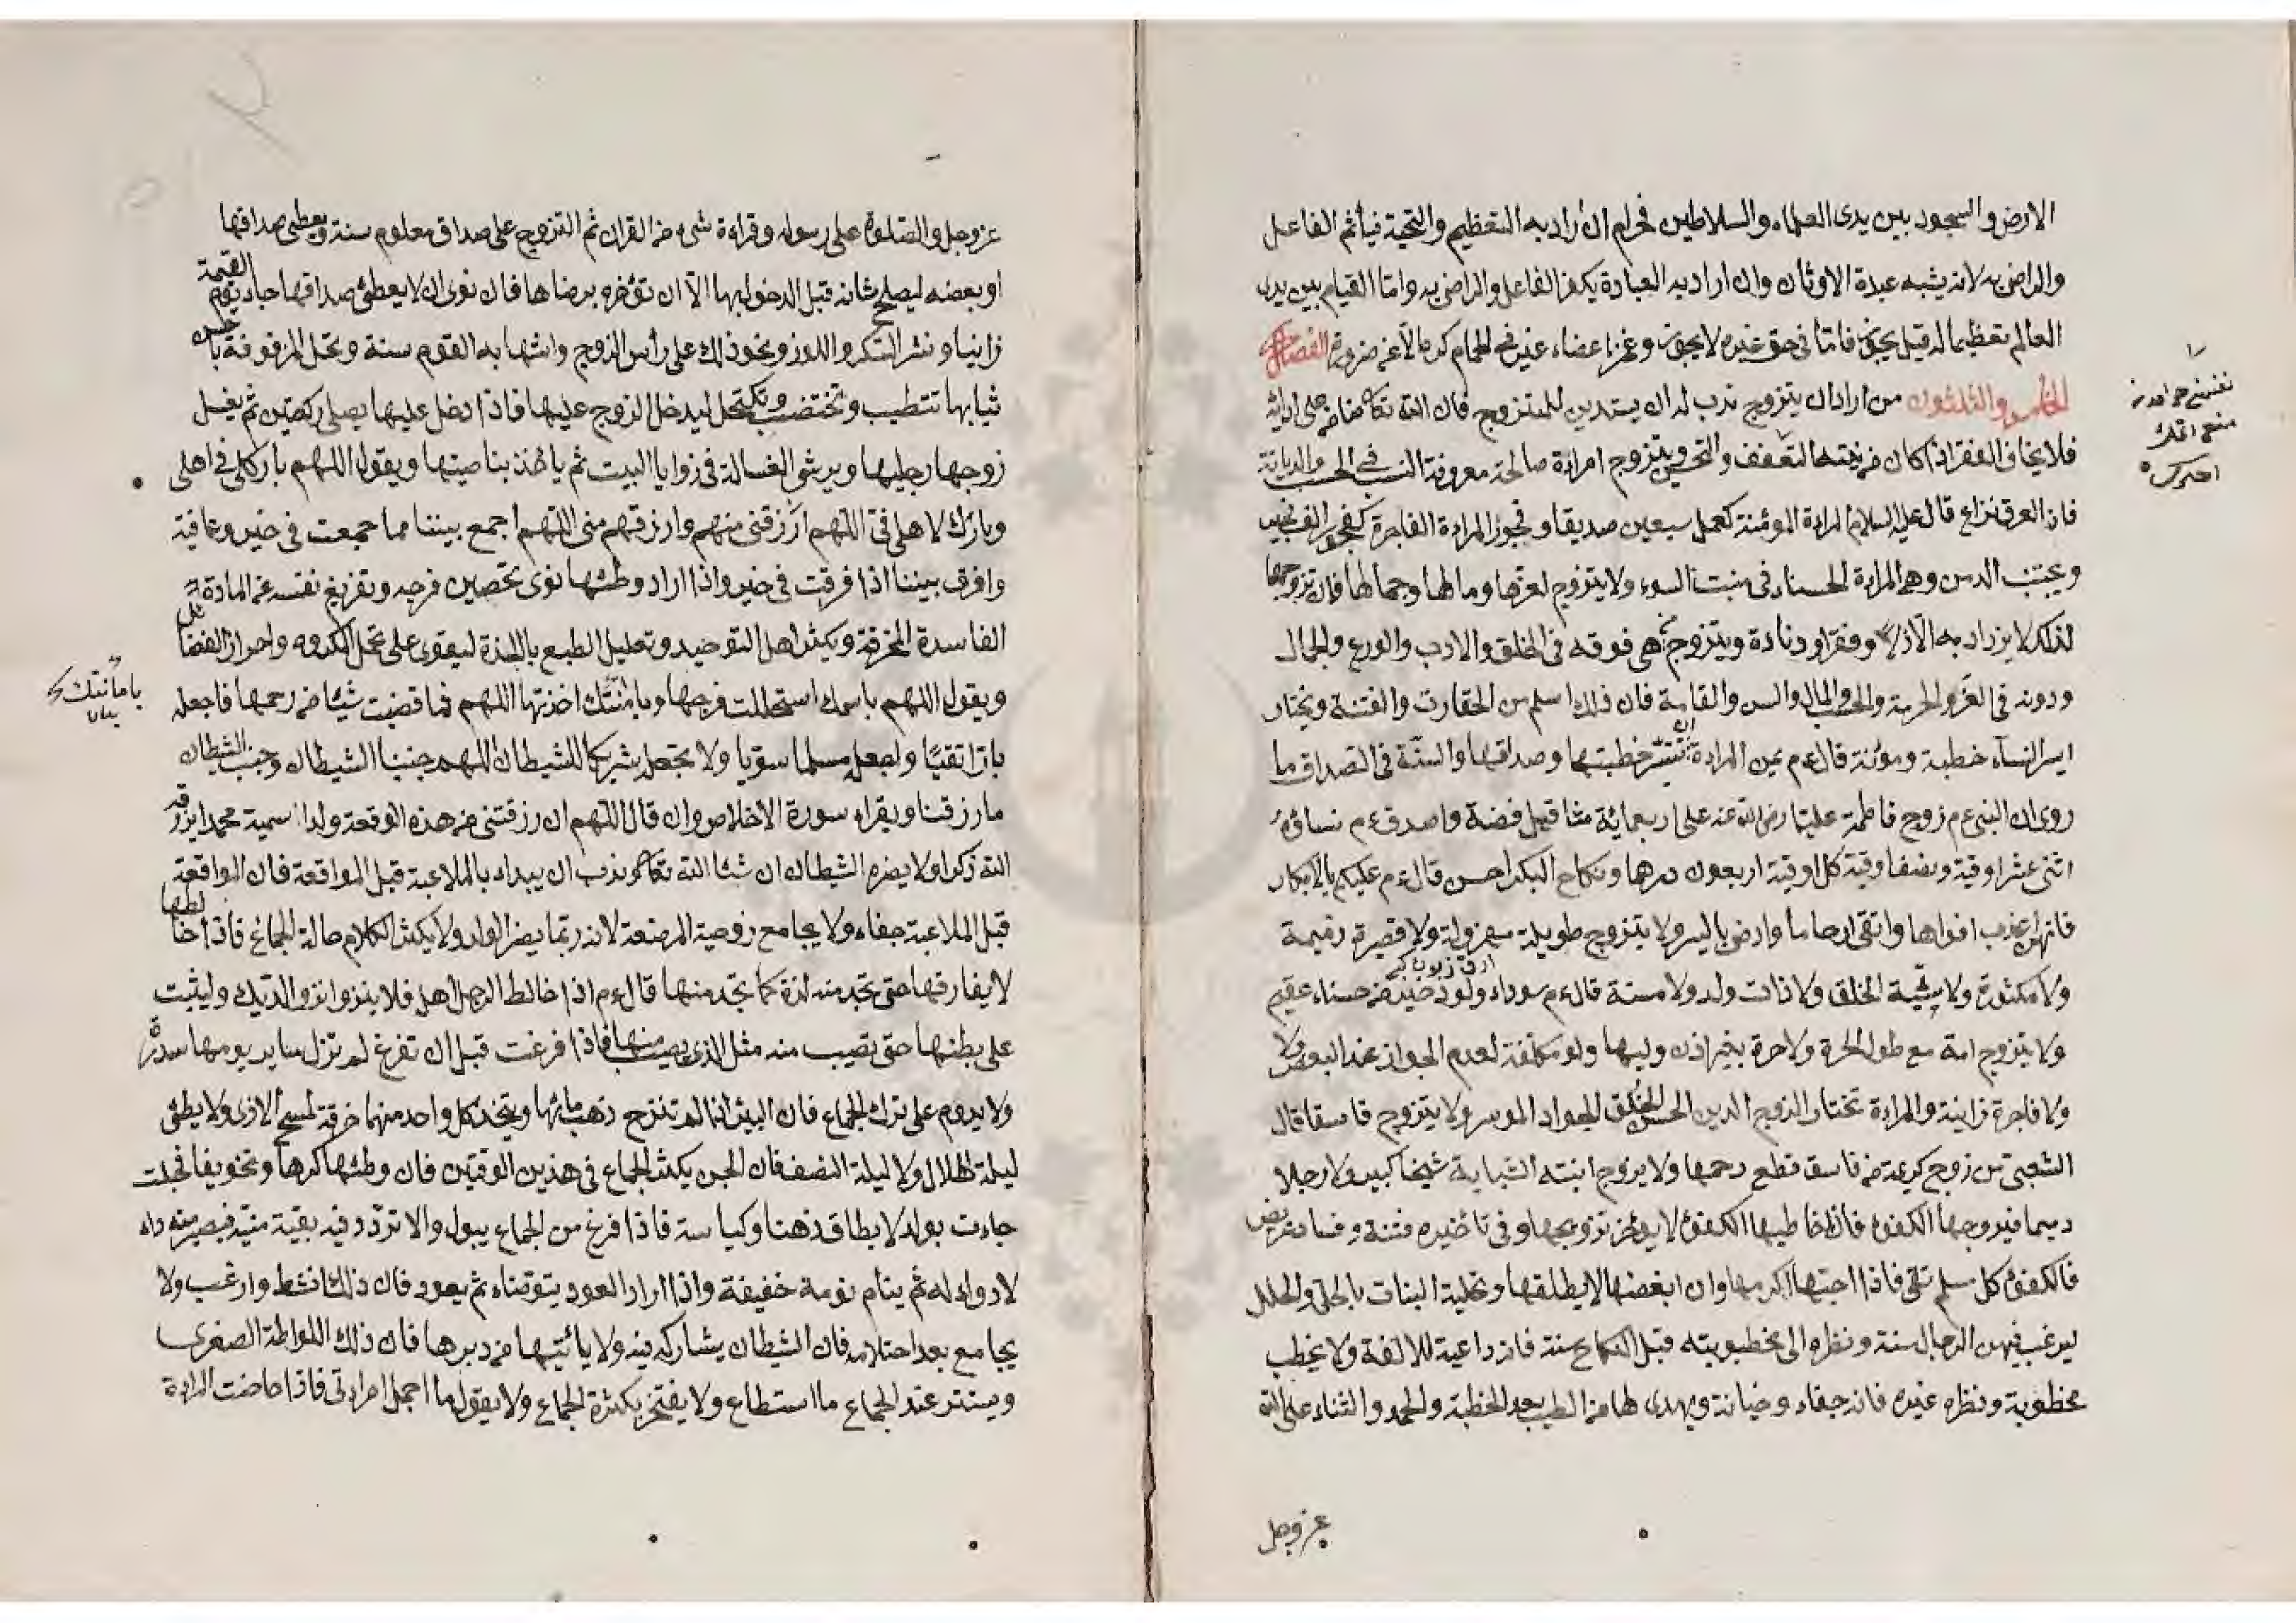 الارض والسجود بين يدى العلماء والسلاطين فحرام ان اراد به التعظيم والتحية فيأثم الفاعل
والراضى به لانه يشبه عبدة الاوثان وان اراد به العبادة يكفر الفاعل والراضى به واما القيام بين يدى
العالم تعظيما له قيل يجوز فاما فى حق غيره لا يجوز وغمز اعضاء غيره فى الحمام كره الا عن ضرورة الفصل
الخامس والثلثون من اراد ان يتزوج ندب له ان يستدين للمتزوج فان الله تعا ضامن على ادائه
فلا يخاف الفقر اذا كان من نيته التعفف والتحصن ويتزوج امراءة صالحة معروفة النسب فى الحسب والديانة
فان العرق نزاع قال عليه السلام المراءة المؤمنة كعمل سبعين صديقا وفجور المراءة الفاجرة كفجور الف
ويجتنب الدمن وهى المراءة الحسناء فى منبت السوء ولا يتزوج لعزها ومالها وجمالها فان تزوجها
لذلك لا يزداد به الا ذلا وفقرا ودناءة ويتزوج من هى فوقه فى الخلق والادب والورع والجمال
ودونه فى العز والحرمة والحسب والمال والسن والقامة فان ذلك اسلم من الحقارت والفتنة ويختار
ايسر النساء خطبة ومؤنة قال ءم يمن المراءة ان تيسر خطبتها وصداقها والسنة فى الصداق ما
روى ان النبى ءم زوج فاطمة عليا رضى الله عنه على اربعمائة مثاقيل فضة واصدق ءم نساؤه
اثنى عشر اوقية ونصفا وقية كل اوقية اربعون درهما ونكاح البكر احسن قال ءم عليكم بالابكار
فانهن اعذب افواها وانقى ارحاما وارضى باليسر ولا يتزوج طويلة مهزولة ولا قصيرة دميمة
ولا مكثورة ولا سيئة الخلق ولا ذات ولد ولا مسنة قال ءم سوداء ولود خير من حسناء عقيم
ولا يتزوج امة مع طول الحرة ولا حرة بغير اذن وليها ولو مكلفة لعدم الجواز عند البعض ولا
ولا فاجرة زانية والمراءة تختار الزوج الدين الحسن الخلق الجواد الموسر ولا يتزوج فاسقا قال
الشعبى من زوج كريمة من فاسق قطع رحمها ولا يزوج ابنته الشابة شيخا كبيرا ولا رجلا
دميما فيزوجها الكفوء فان خاطبها الكفوء لا يؤخر تزويجها وفى تاخيره فتنة وفساد عريض
فالكفوء كل مسلم تقى فاذا احبها اكرمها وان ابغضها لا يطلقها وتحلية البنات بالحلى والحلل
ليرغب فيهن الرجال سنة ونظره الى مخطوبته قبل النكاح سنة فانه داعية للالفة ولا يخطب
مخطوبة ونظره غيره فانه جفاء وخيانة ويهدى لها من الطيب بعد الخطبة والحمد والثناء على الله
عز وجل
عز وجل والصلوة على رسوله وقراءة شىء من القران ثم التزويج على صداق معلوم سنة ويعطى صداقها
او بعضه ليصلح شانه قبل الدخول بها الا ان تؤخره برضاها فان نوى ان لا يعطى صداقها جاء يوم القيمة
زانيا ونثر السكر واللوز ونحو ذلك على رأس الزوج وانتهابه القوم سنة وتحل المزفوفة باحسن
ثيابها تتطيب وتختضب وتكتحل ليدخل الزوج عليها فاذا دخل عليها يصلى ركعتين ثم يغسل
زوجها رجليها ويرش الغسالة فى زوايا البيت ثم ياخذ بناصيتها ويقول اللهم بارك لى فى اهلى
وبارك لاهلى فى اللهم ارزقنى منهم وارزقهم منى اللهم اجمع بيننا مما جمعت فى خير وعافية
وافرق بيننا اذا فرقت فى خير واذا اراد وطئها نوى تحصين فرجه وتفريغ نفسه عن المادة
الفاسدة المحرقة وتكثير اهل التوحيد وتعليل الطبع باللذة ليقوى على تحمل المكروه واحراز الفضائل
ويقول اللهم باسمك استحللت فرجها وبامانتك اخذتها اللهم فما قضيت شيئا من رحمها فاجعله
بارا تقيا واجعله مسلما سويا ولا تجعله شريكا للشيطان اللهم جنبنا الشيطان وجنب الشيطان
ما رزقنا ويقراء سورة الاخلاص وان قال اللهم ان رزقتنى من هذه الوقعة ولدا سميه محمدا يرزقه
الله ذكرا ولا يضره الشيطان ان شا الله تعا وندب ان يبداء بالملاعبة قبل المواقعة فان المواقعة
قبل الملاعبة جفاء ولا يجامع زوجية المرضعة لانه ربما يضر الولد ولا يكثر الكلام حالة الجماع فاذا خالطها
لا يفارقها حتى تجد منه لذة كما تجد منها قال ءم اذا خالط الرجل اهله فلا ينزو نزو الديك وليثبت
على بطنها حتى تصيب منه مثل الذى يصيب منها فاذا فرغت قبل ان تفرغ لم تزل سايريومها سدر
ولا يدوم على ترك الجماع فان البئر اذا لم تنزح ذهب مائها ويتخذ كل واحد منهما خرقة لمسح الاذى ولا يطئ
ليلة الهلال ولا ليلة النصف فان الجن يكثر الجماع فى هذين الوقتين فان وطئها كرها وتخويفا فحبلت
جاءت بولد لا يطاق ذهنا وكياسة فاذا فرغ من الجماع يبول والا تردد فيه بقية منيه فيصير منه داء
لا دواء له ثم ينام نومة خفيفة واذا اراد العود يتوضاء ثم يعود فان ذلك انشط وارغب ولا
يجامع بعد احتلامه فان الشيطان يشاركه فيه ولا يأتيها من دبرها فان ذلك اللواطة الصغرى
ويستتر عند الجماع ما استطاع ولا يفتخر بكثرة الجماع ولا يقول ما اجمل امراءتى فاذا حاضت المراءة
بامانتك
بيان